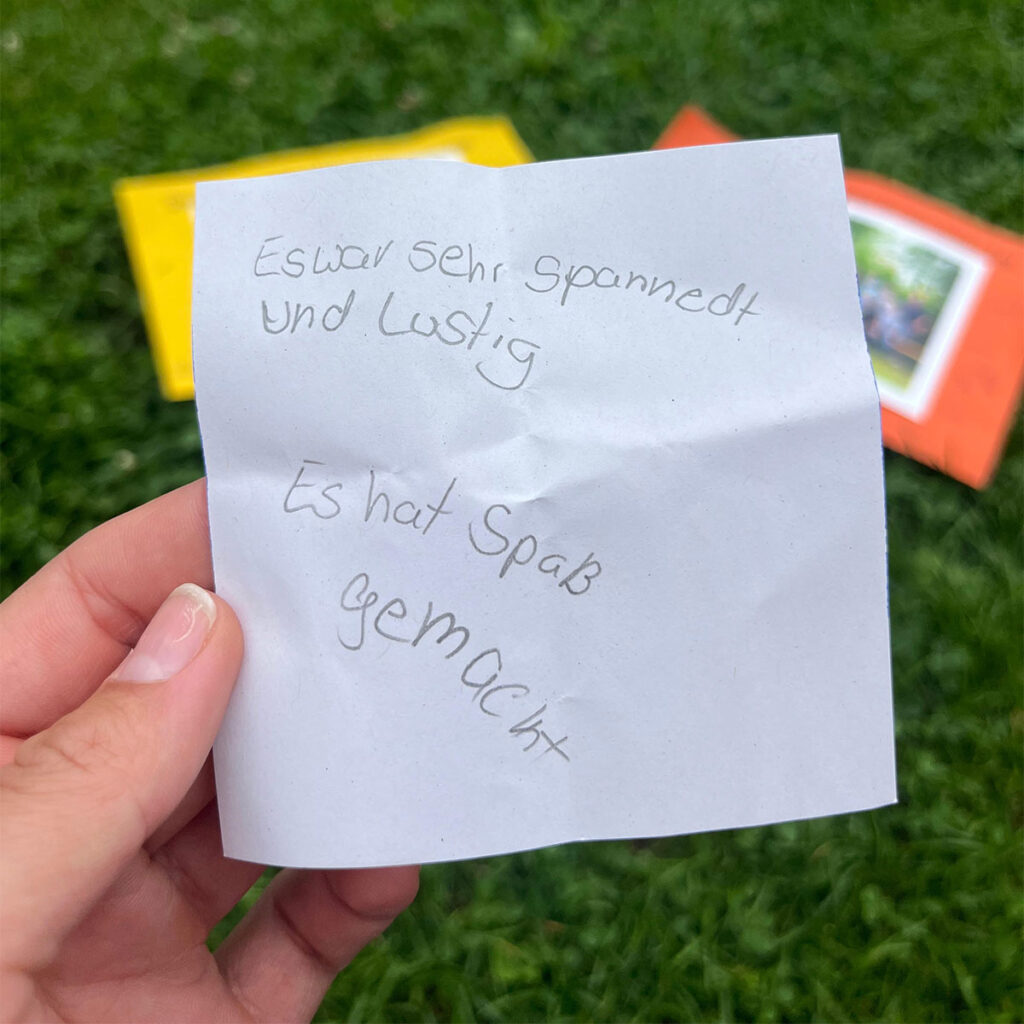 Es war sehr spannedt
und Lustig
Es hat Spaß
gemacht